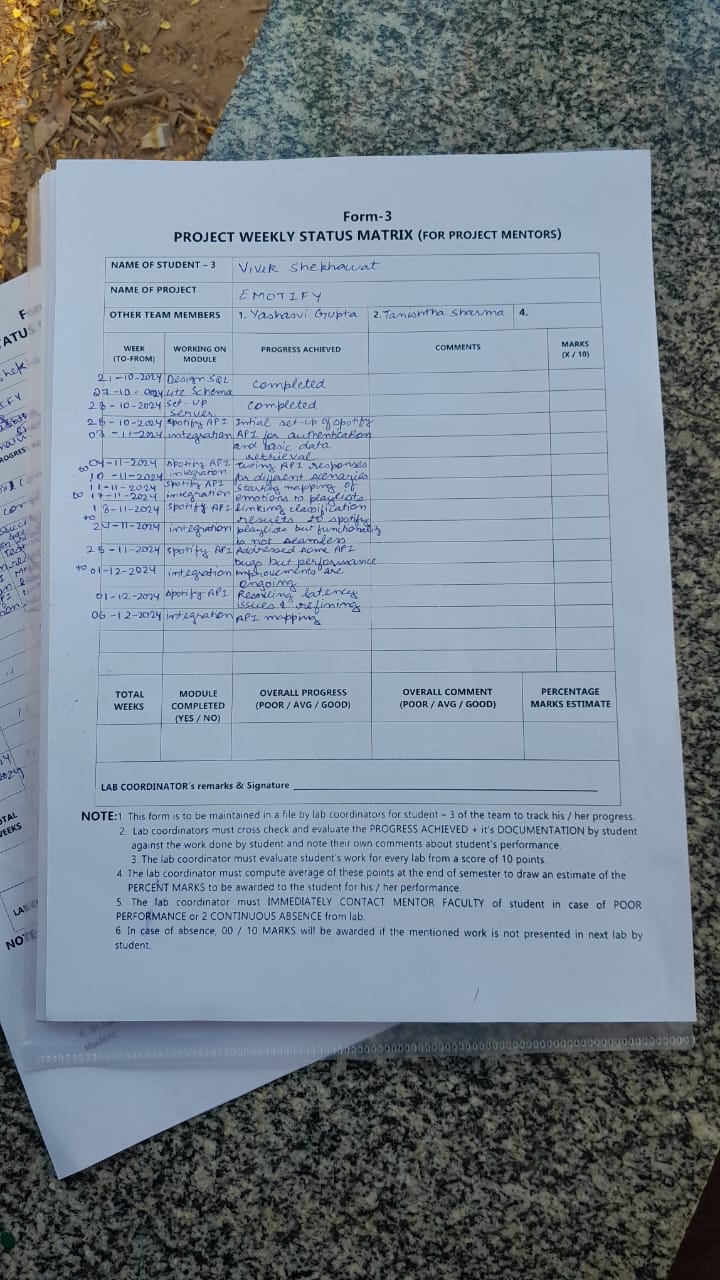 Form-3
PROJECT WEEKLY STATUS MATRIX (FOR PROJECT MENTORS)
NAME OF STUDENT – 3 Vivek Shekhawat
NAME OF PROJECT EMOTIFY
OTHER TEAM MEMBERS 1. Yashasvi Gupta 2. Tanishtha Sharma 4.
WEEK (TO-FROM) WORKING ON MODULE PROGRESS ACHIEVED COMMENTS MARKS (X / 10)
21-10-2024 Design SQL completed
27-10-2024 Lite Schema
28-10-2024 Set-up server completed
28-10-2024 Spotify API Intial set-up of spotify
03-11-2024 integration API for authentication
and basic data
retrieval
04-11-2024 Spotify API testing API responses
to 10-11-2024 integration for different scenarios
11-11-2024 Spotify API Starting mapping of
to 17-11-2024 integration emotions to playlists
18-11-2024 Spotify API linking classification
to results to spotify
24-11-2024 integration playlists but functionality
is not seamless
25-11-2024 Spotify API Addressed some API
bugs but performance
to 01-12-2024 integration improvements are
ongoing
01-12-2024 Spotify API Resolving latency
issues & refining
06-12-2024 integration API mapping
TOTAL WEEKS MODULE COMPLETED (YES / NO) OVERALL PROGRESS (POOR / AVG / GOOD) OVERALL COMMENT (POOR / AVG / GOOD) PERCENTAGE MARKS ESTIMATE
LAB COORDINATOR's remarks & Signature
NOTE:1 This form is to be maintained in a file by lab coordinators for student – 3 of the team to track his / her progress.
2. Lab coordinators must cross check and evaluate the PROGRESS ACHIEVED + it's DOCUMENTATION by student
against the work done by student and note their own comments about student's performance.
3. The lab coordinator must evaluate student's work for every lab from a score of 10 points.
4. The lab coordinator must compute average of these points at the end of semester to draw an estimate of the
PERCENT MARKS to be awarded to the student for his / her performance.
5. The lab coordinator must IMMEDIATELY CONTACT MENTOR FACULTY of student in case of POOR
PERFORMANCE or 2 CONTINUOUS ABSENCE from lab.
6. In case of absence, 00 / 10 MARKS will be awarded if the mentioned work is not presented in next lab by
student.